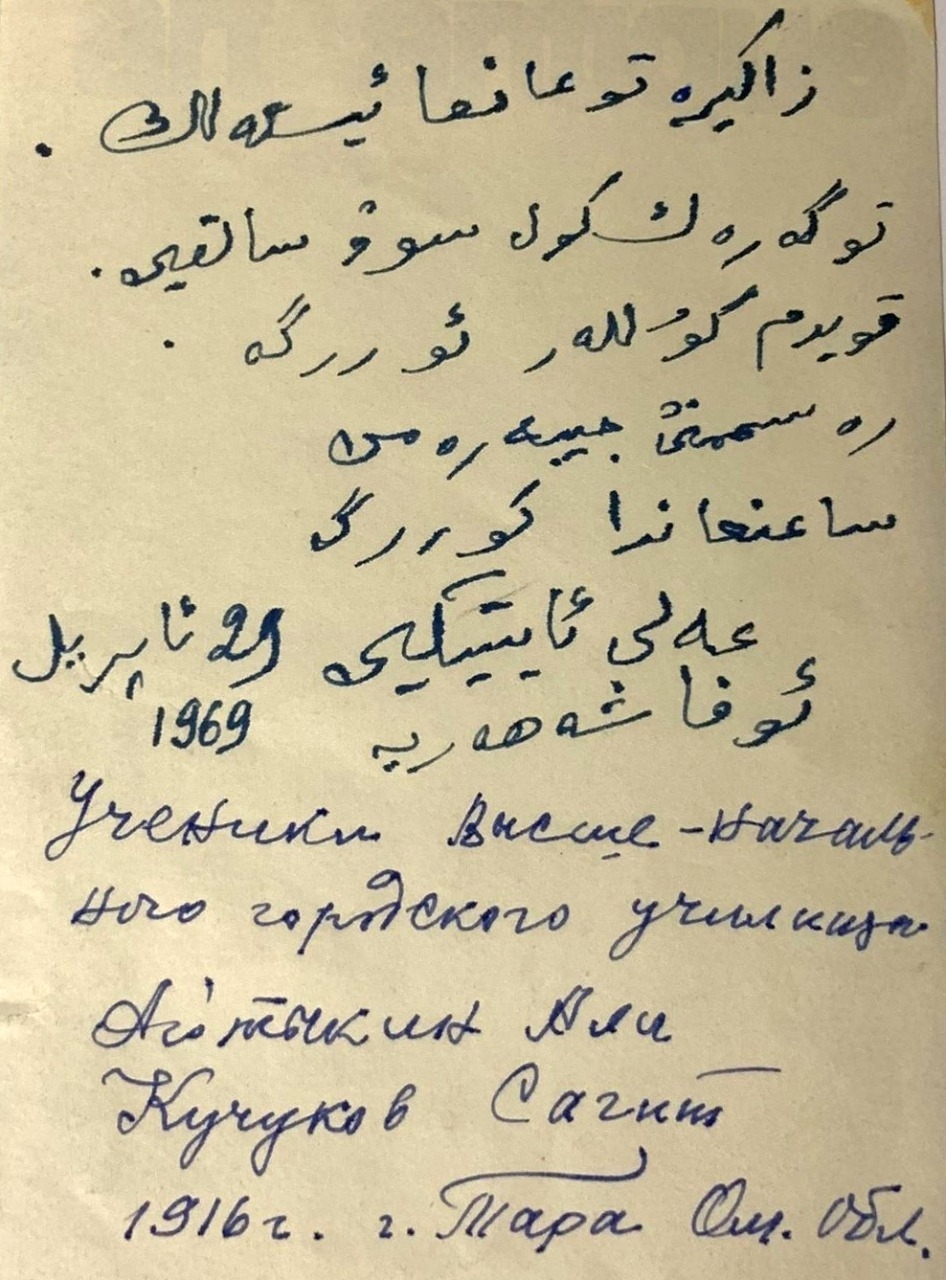 زاكيره توعانغا ئيستەلك.
توگەرەك كول سوۋ سالقيى.
قويدم گوُللەر ئوررگە.
رەسمنى جيبەرەمن
ساعنغاندا كوررگە
عەلى ئايتيكيى 29 ئاپريل
ئوفا شەھەريە 1969
Ученики Высше-началь-
ного городского училища
Айтыкин Али
Кучуков Сагит
1916 г. г. Тара Ом. Обл.